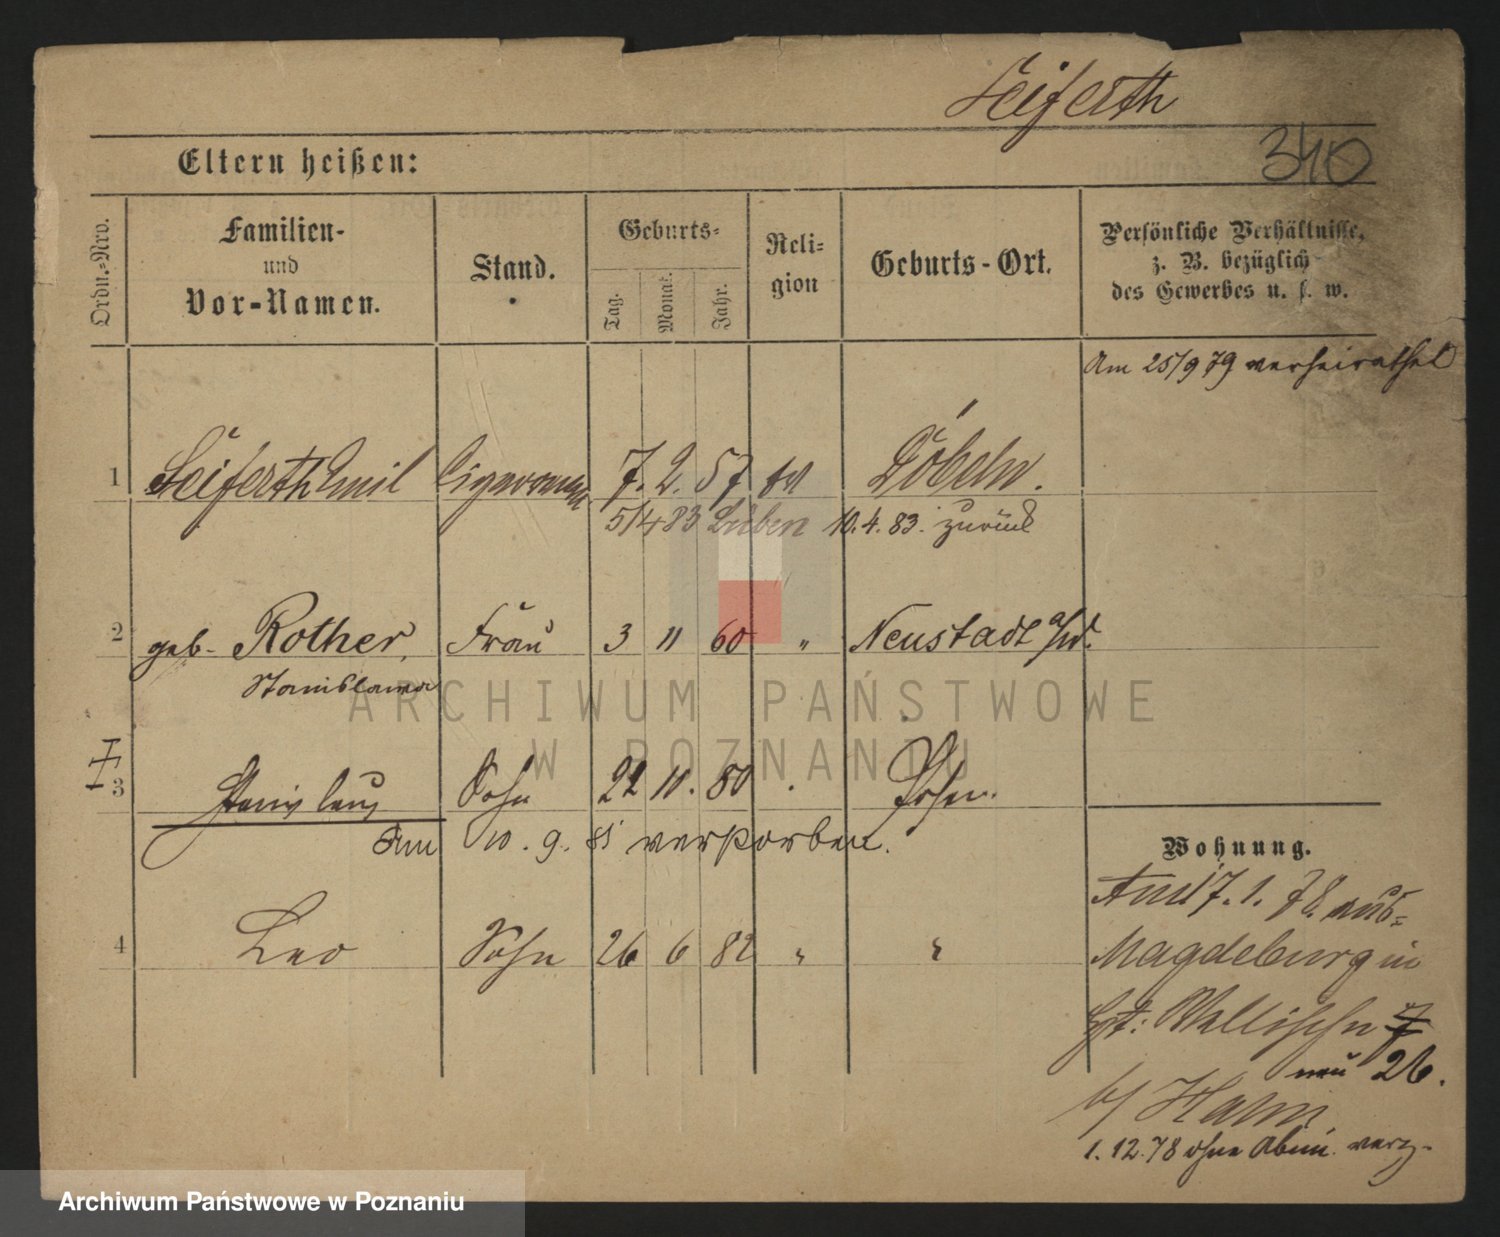 Seiferth
340
Eltern heißen:
Ordn.-Nro.
Familien-
und
Vor-Namen.
Stand.
Geburts-
Tag.
Monat.
Jahr.
Reli-
gion
Geburts-Ort.
Persönliche Verhältnisse,
z. B. bezüglich
des Gewerbes u. s. w.
Am 25/9 79 verheirathet
1 Seiferth Emil 7. 2. 57 Döbeln.
5/4 83 Lüben 10. 4. 83. zurück
2 geb. Rother, Frau 3 11 60 " Neustadt a/W.
Stanislawa
3 Stanislaus Sohn 22 10. 80 Posen.
Am 10. 9. 81 verstorben.
4 Leo Sohn 26 6 82 "
Wohnung.
Am 17. 1. 78 aus
Magdeburg in
Wallischei 7
neu 26.
b/ Hahn
1. 12. 78 ohne Abm. verz.
ARCHIWUM PAŃSTWOWE
W POZNANIU
Archiwum Państwowe w Poznaniu